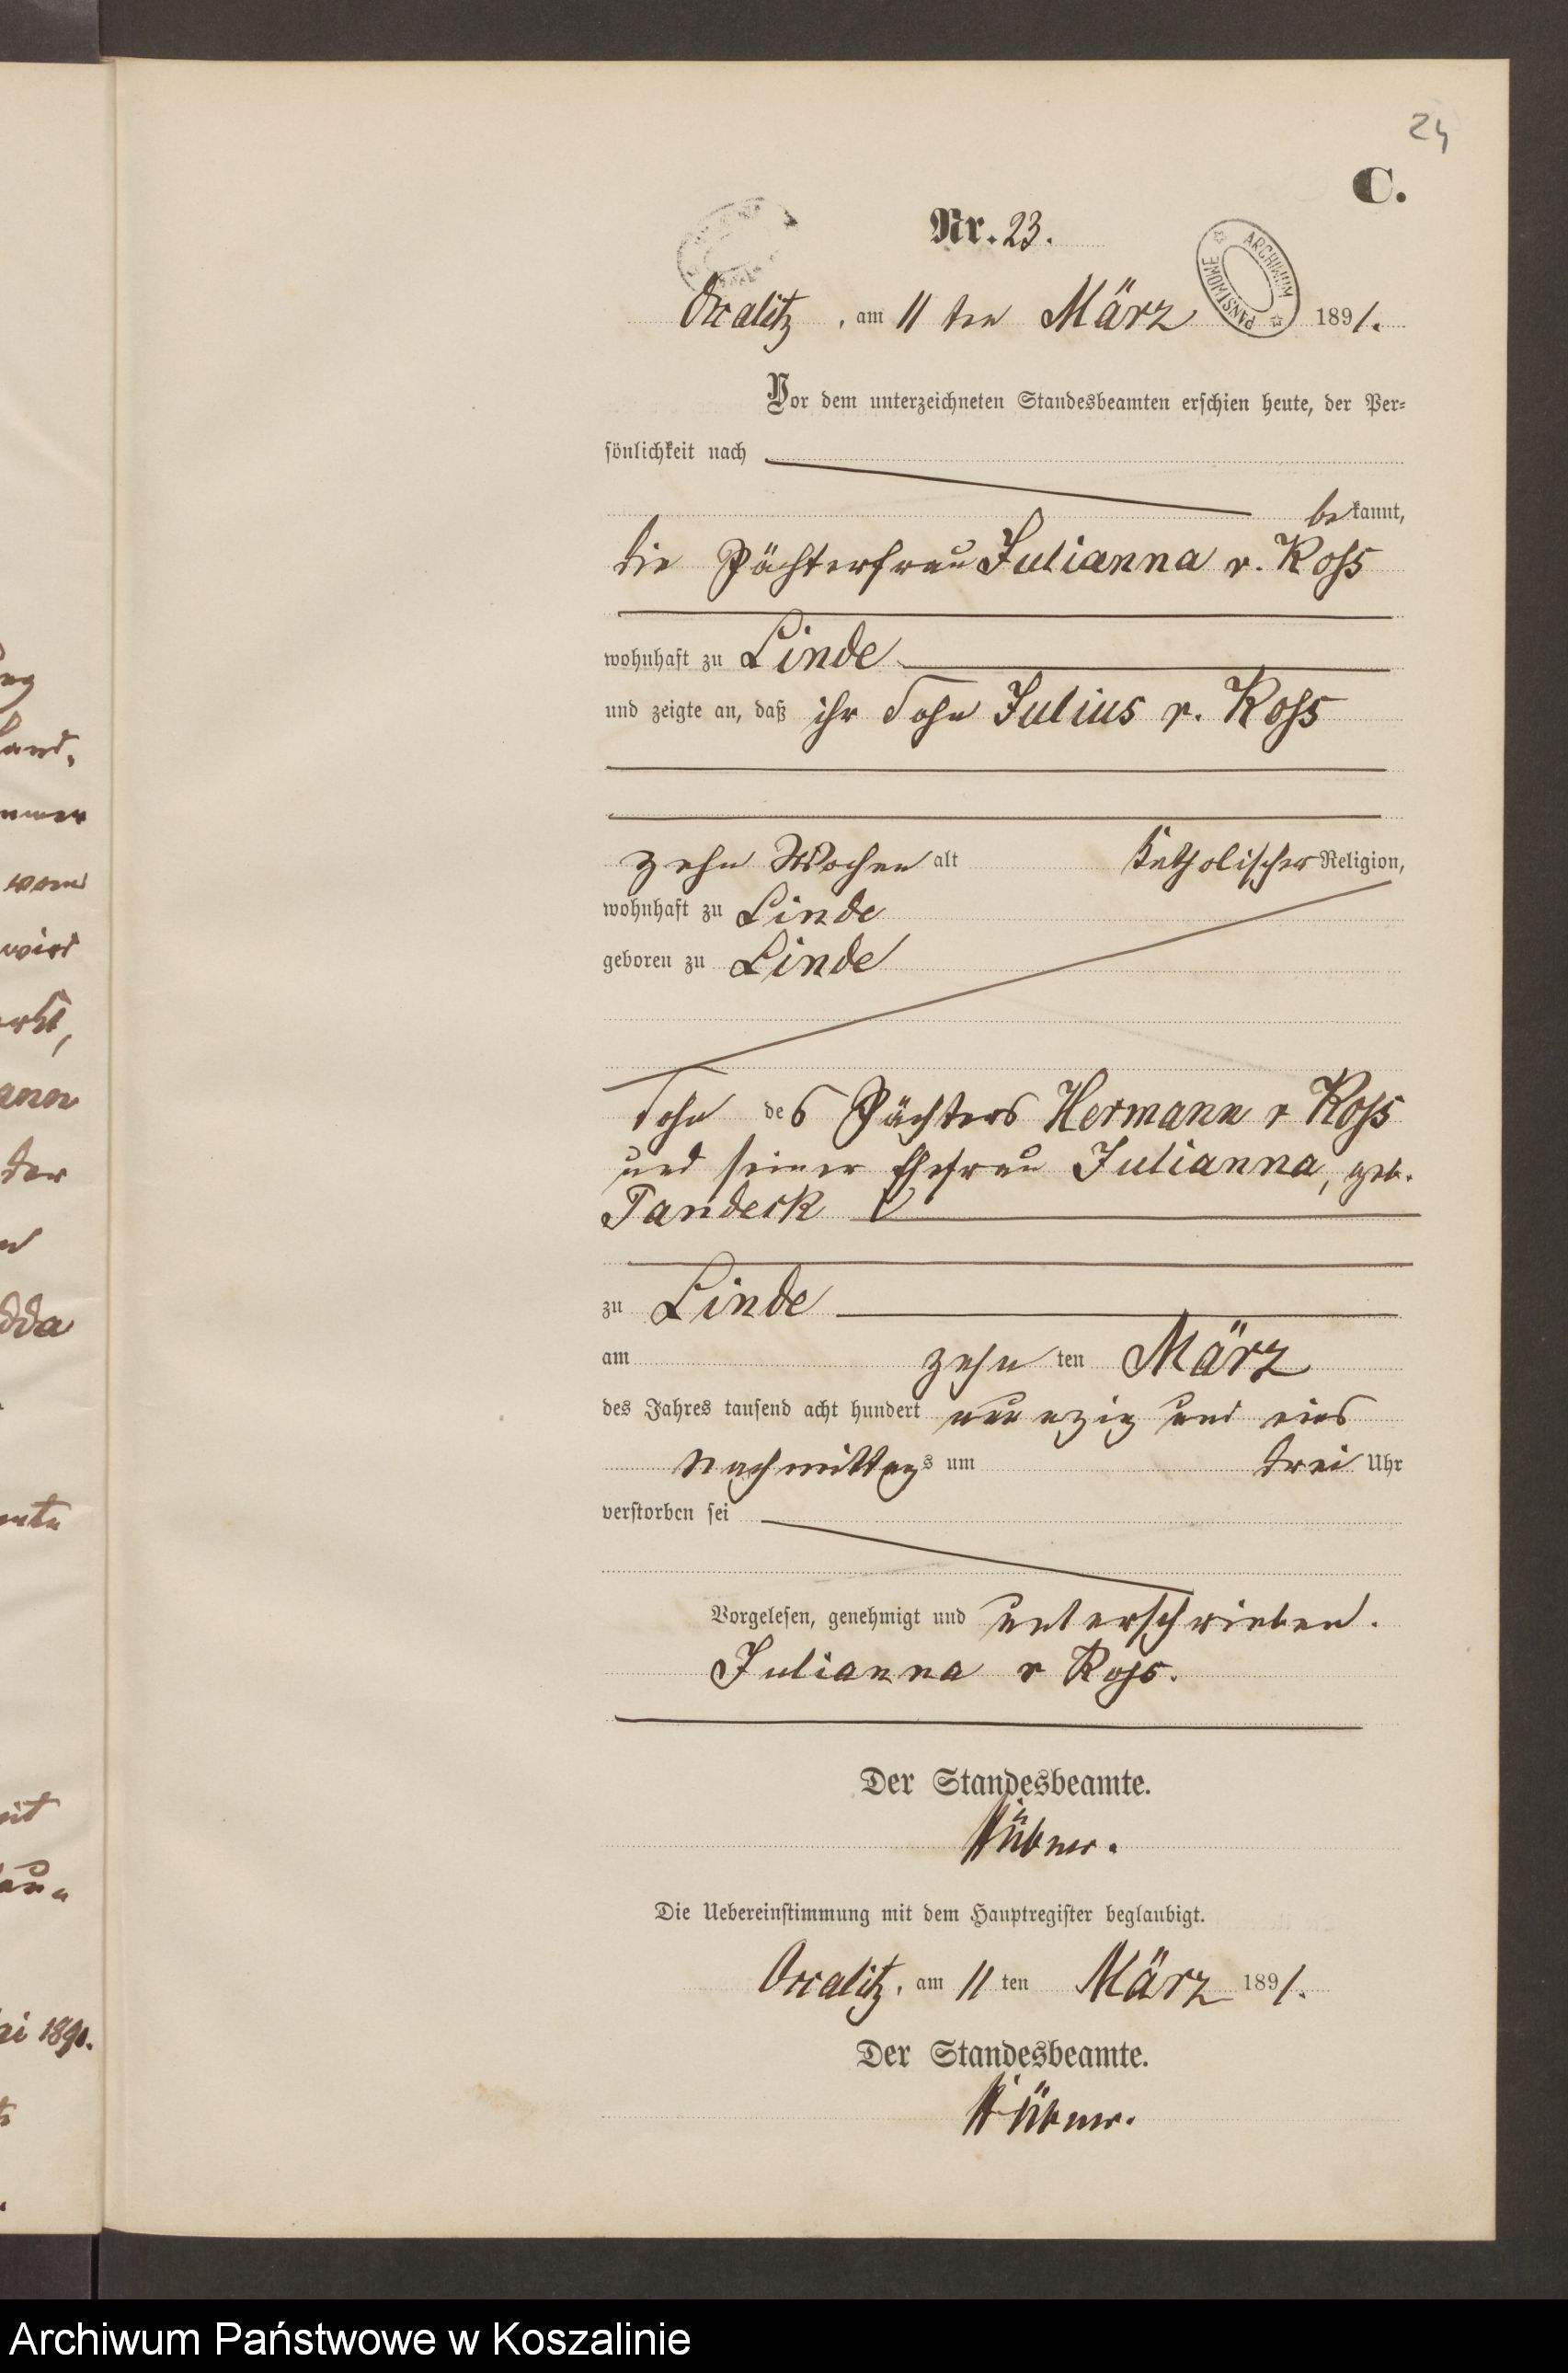 24
C.
Nr. 23.
ARCHIWUM PAŃSTWOWE
Occalitz, am 11 ten März 1891.
Vor dem unterzeichneten Standesbeamten erschien heute, der Per-
sönlichkeit nach
bekannt,
die Pächterfrau Julianna v. Koss
wohnhaft zu Linde
und zeigte an, daß ihr Sohn Julius v. Koss
zehn Wochen alt katholischer Religion,
wohnhaft zu Linde
geboren zu Linde
Sohn des Pächters Hermann v Koss
und seiner Ehefrau Julianna, geb.
Pandeck
zu Linde
am zehn ten März
des Jahres tausend acht hundert neunzig und eins
Nachmittags um drei Uhr
verstorben sei
Vorgelesen, genehmigt und unterschrieben.
Julianna v Koss.
Der Standesbeamte.
Hübner.
Die Uebereinstimmung mit dem Hauptregister beglaubigt.
Occalitz, am 11 ten März 1891.
Der Standesbeamte.
Hübner.
Archiwum Państwowe w Koszalinie